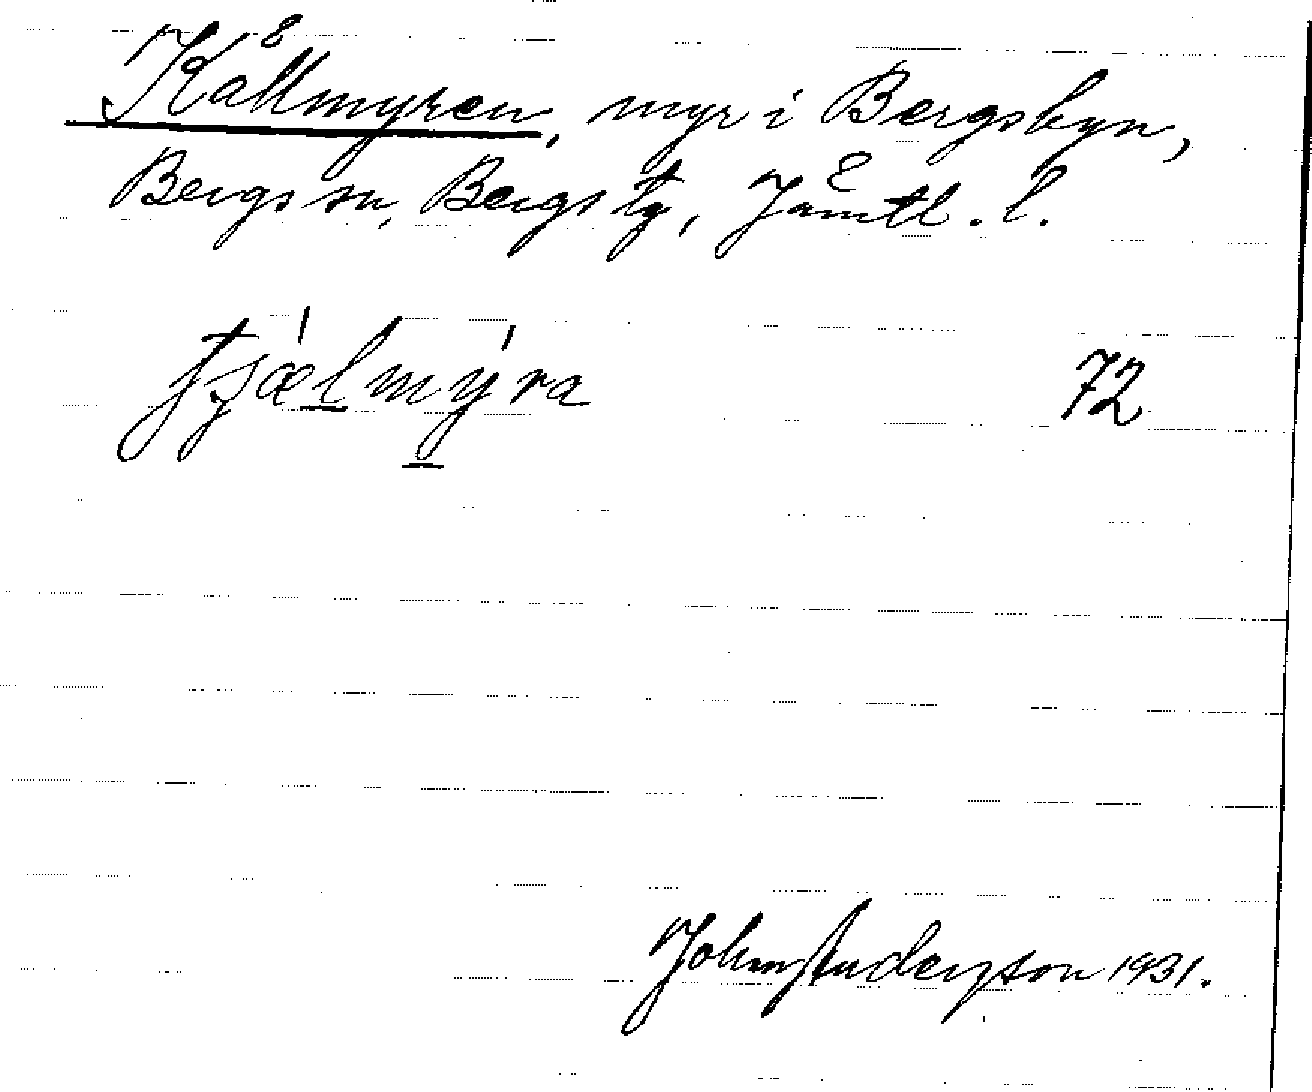 Källmyren, myr i Bergsbyn,
Bergs sn, Bergs tg, Jämtl. l.
tjæ'lmy'ra 72
John Andersson 1931.